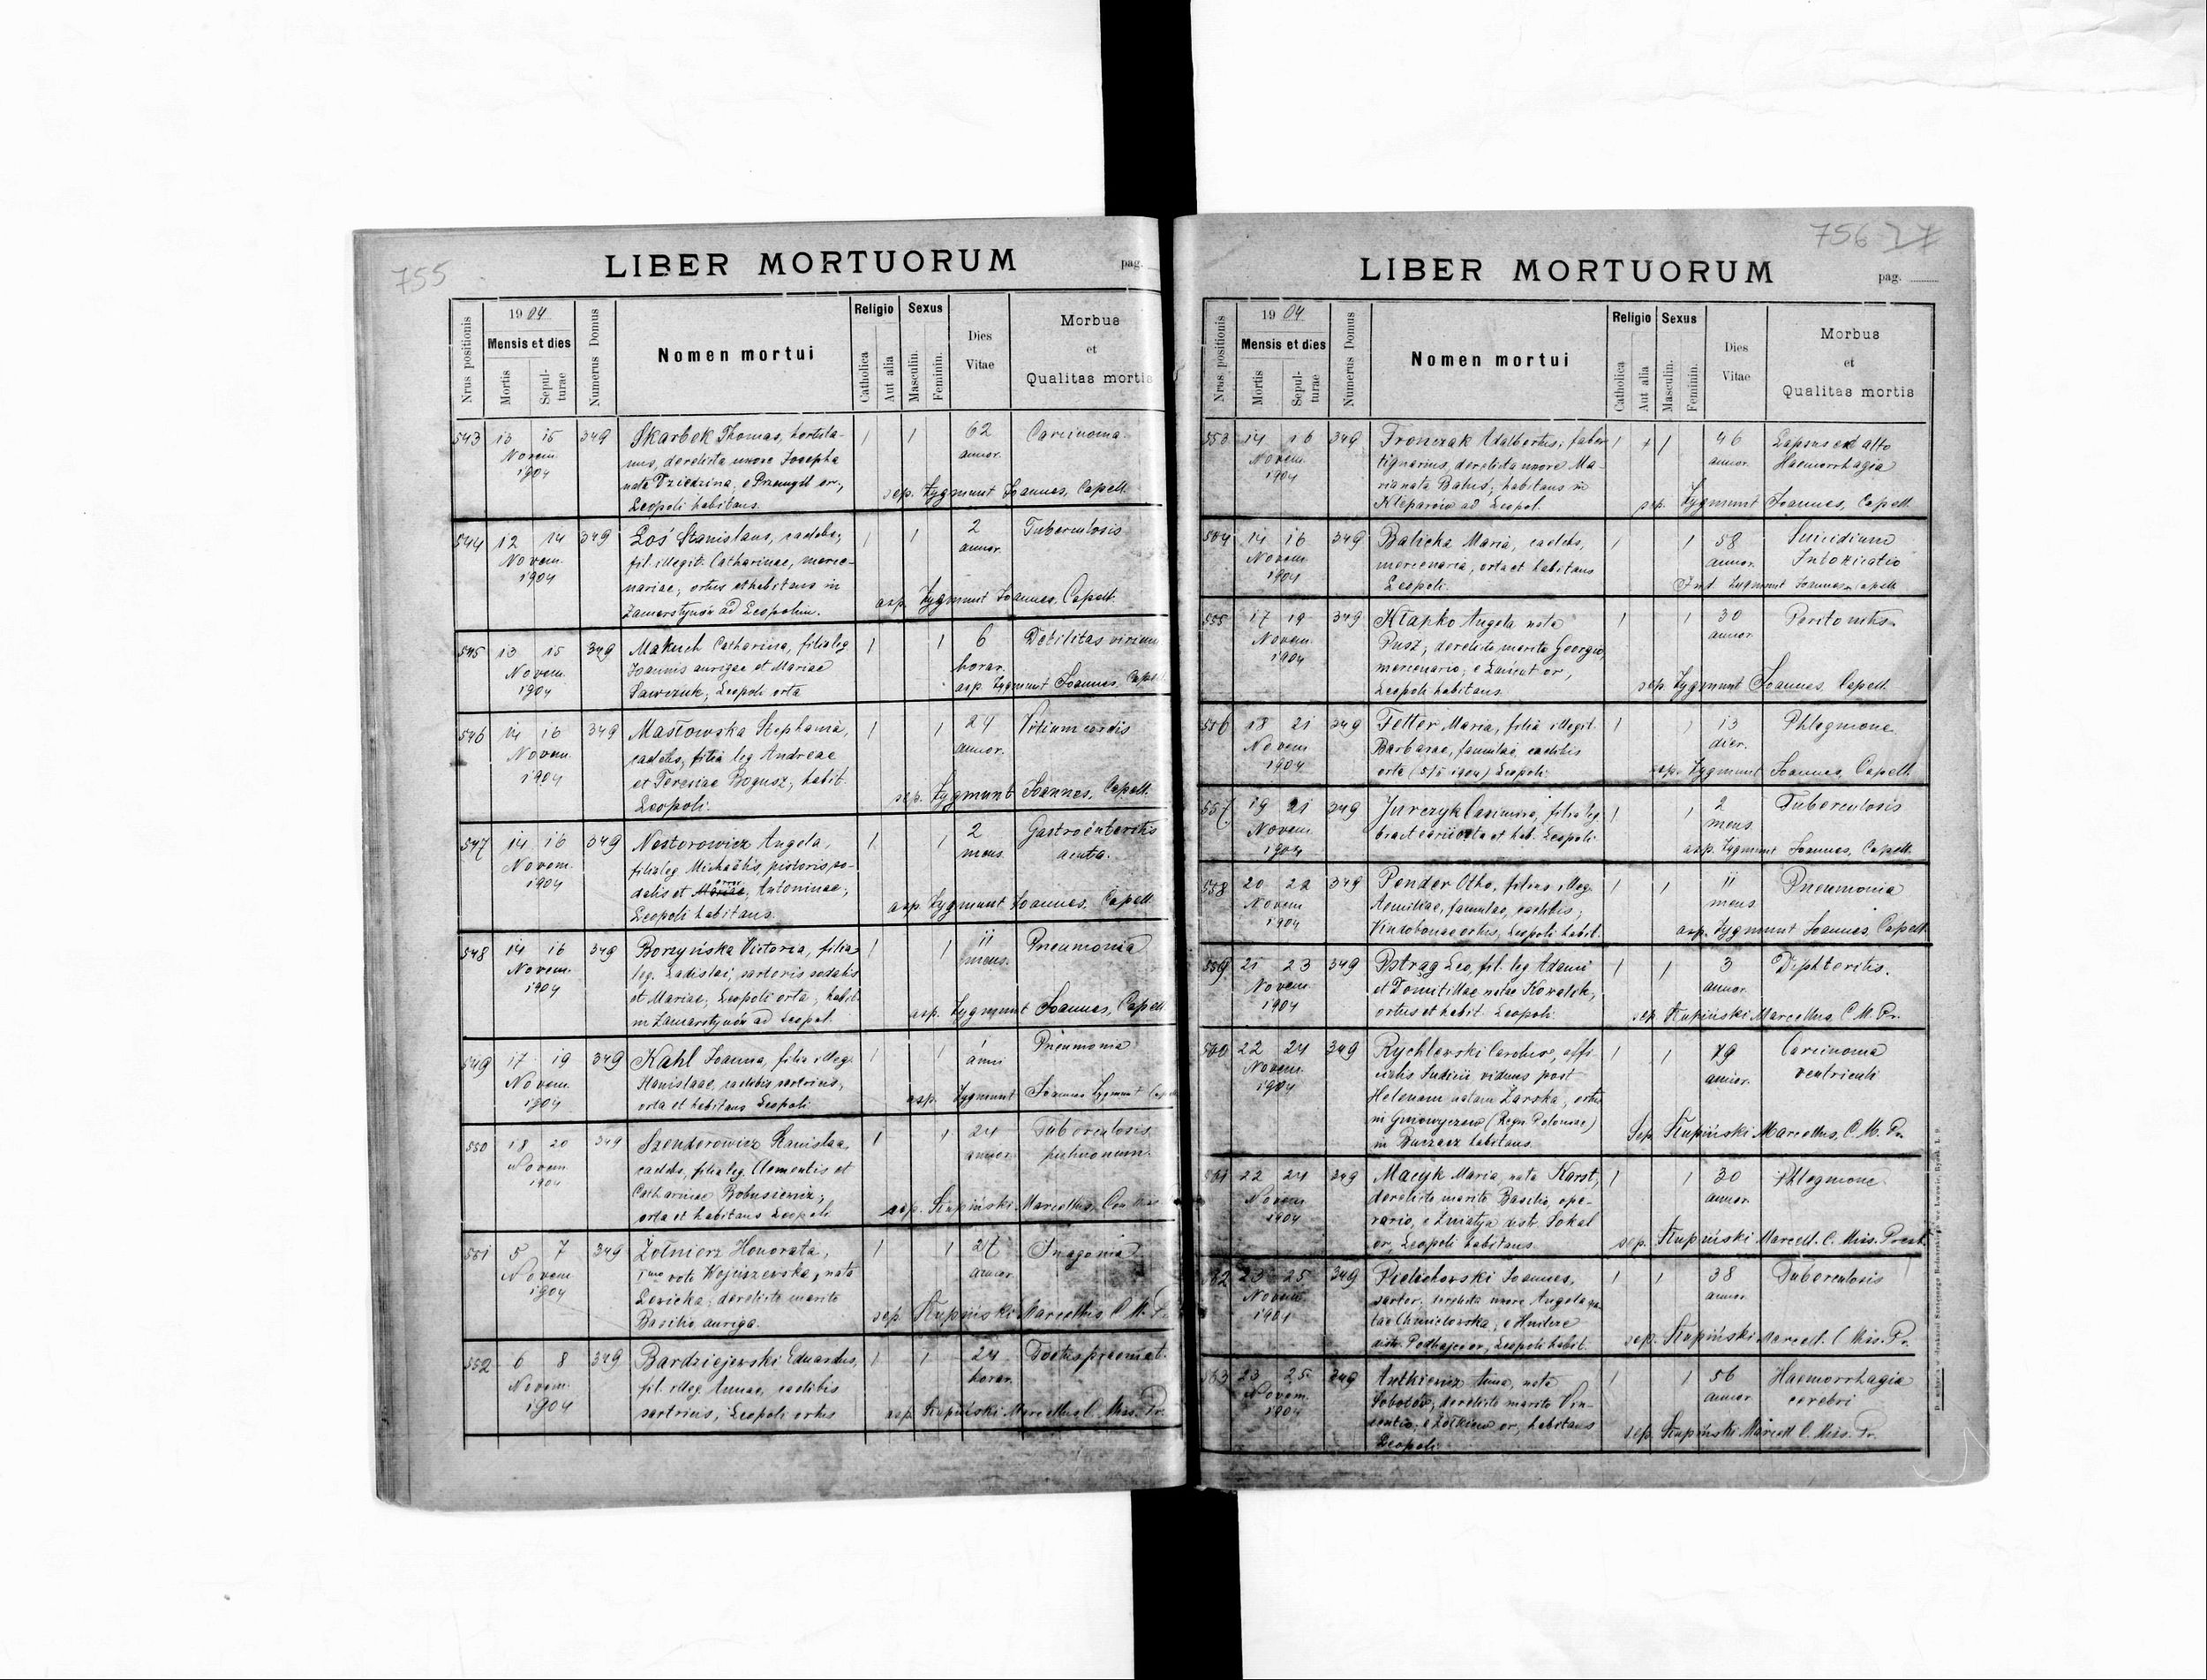 755
LIBER MORTUORUM
pag.
Nrus positionis
1904
Mensis et dies
Mortis
Sepul-
turae
Numerus Domus
Nomen mortui
Religio
Catholica
Aut alia
Sexus
Masculin.
Feminin.
Dies
Vitae
Morbus
et
Qualitas mortis
543 13 15 349 Skarbek Thomas, hortula- 1 1 62 Carcinoma
Novem. nus, derelicta uxore Josepha annor.
1904 nata Dziedzina, e Przemyśl or.,
Leopoli habitans. sep. Zygmunt Joannes, Capell.
544 12 14 349 Łoś Stanislaus, caelebs, 1 1 2 Tuberculosis
Novem. fil. illegit. Catharinae, merce- annor.
1904 nariae, ortus et habitans in
Zamarstynów ad Leopolim. asp. Zygmunt Joannes, Capell.
545 13 15 349 Makuch Catharina, filia leg. 1 1 6 Debilitas virium
Novem. Joannis aurigae et Mariae horar.
1904 Sawczuk, Leopoli orta asp. Zygmunt Joannes, Capell
546 14 16 349 Masłowska Stephania, 1 1 24 Vitium cordis
Novem. caelebs, filia leg. Andreae annor.
1904 et Teresiae Bogusz, habit.
Leopoli. sep. Zygmunt Joannes, Capell.
547 14 16 349 Nestorowicz Angela, 1 1 2 Gastroënteritis
Novem. filia leg. Michaëlis, pistoris so- mens. acuta.
1904 dalis et Mariae, Antoninae,
Leopoli habitans. asp. Zygmunt Joannes, Capell.
548 14 16 349 Borzyńska Victoria, filia 1 1 11 Pneumonia
Novem. leg. Ladislai, sartoris sodalis mens.
1904 et Mariae, Leopoli orta, habit.
in Zamarstynów ad Leopol. asp. Zygmunt Joannes, Capell
549 17 19 349 Kahl Joanna, filia illeg. 1 1 1 Pneumonia
Novem. Stanislaae, caelebis sartricis, anni
1904 orta et habitans Leopoli asp. Zygmunt Joannes Zygmunt
550 18 20 349 Szenderowicz Stanislaa, 1 1 24 Tuberculosis
Novem. caelebs, filia leg. Clementis et annor. pulmonum.
1904 Catharinae Bobusiewicz,
orta et habitans Leopoli sep. Słupiński Marcellus,
551 5 7 349 Żołnierz Honorata, 1 1 27 In agonia
Novem. 1mo voto Wojciszewska, nata annor.
1904 Lewicka, derelicta marito
Basilio, auriga. sep. Słupiński Marcellus C. M. P.
552 6 8 349 Bardziejewski Eduardus, 1 1 24 Foetus praemat.
Novem. fil. illeg. Annae, caelibis horar.
1904 sartricis, Leopoli ortus asp. Słupiński Marcellus C. Miss. Pr.
756 27
LIBER MORTUORUM
pag.
Nrus positionis
1904
Mensis et dies
Mortis
Sepul-
turae
Numerus Domus
Nomen mortui
Religio
Catholica
Aut alia
Sexus
Masculin.
Feminin.
Dies
Vitae
Morbus
et
Qualitas mortis
553 14 16 349 Fronczak Adalbertus, faber 1 + 1 46 Lapsus ex alto
Novem. lignarius, derelicta uxore Ma- annor. Haemorrhagia
1904 ria nata Batus, habitans in
Kleparów ad Leopol. sep. Zygmunt Joannes, Capell.
554 14 16 349 Balicka Maria, caelebs, 1 1 58 Suicidium
Novem. mercenaria, orta et habitans annor. Intoxicatio
1904 Leopoli. Ind. Zygmunt Joannes Capell.
555 17 19 349 Kłapko Angela nata 1 1 30 Peritonitis
Novem. Pusz, derelicta marito Georgio, annor.
1904 mercenario, e Łańcut or.,
Leopoli habitans. sep. Zygmunt Joannes, Capell.
556 18 21 349 Fetter Maria, filia illegit. 1 1 13 Phlegmone
Novem. Barbarae, famulae caelibis dier.
1904 orta (5/11 1904) Leopoli sep. Zygmunt Joannes, Capell.
557 19 21 349 Jurczyk Casimira, filia leg. 1 1 2 Tuberculosis
Novem. orta et hab. Leopoli mens.
1904 asp. Zygmunt Joannes, Capell.
558 20 22 349 Pender Otho, filius illeg. 1 1 11 Pneumonia
Novem. Aemiliae, famulae, caelibis, mens.
1904 Vindobonae ortus, Leopoli habit. asp. Zygmunt Joannes, Capell.
559 21 23 349 Pstrąg Leo, fil. leg. Adami 1 1 3 Diphteritis.
Novem. et Domitillae natae Kowalek, annor.
1904 ortus et habit. Leopoli sep. Słupiński Marcellus C. M. Pr.
560 22 24 349 Rychlewski Carolus, offi- 1 1 79 Carcinoma
Novem. cialis Judicii viduus post annor. ventriculi
1904 Helenam natam Żarska, ortus
in (Regn. Poloniae)
in Buczacz habitans. Sep. Słupiński Marcellus, C. M. Pr.
561 22 24 349 Macyk Maria, nata Karst, 1 1 30 Phlegmone
Novem. derelicta marito Basilio, ope- annor.
1904 rario, e Żniatyn distr. Sokal
or., Leopoli habitans. sep. Słupiński Marcell. C. Miss. Presb.
562 23 25 349 Pielichowski Joannes, 1 1 38 Tuberculosis
Novem. sartor, derelicta uxore Angela na- annor.
1904 ta Chmielowska, e Hnilcze
distr. Podhajce or., Leopoli habit. sep. Słupiński Marcell. C. Miss. Pr.
563 23 25 349 Antkiewicz Anna, nata 1 1 56 Haemorrhagia
Novem. Sobotów, derelicta marito Vin- annor. cerebri
1904 centio, e Żółkiew or., habitans
Leopoli. sep. Słupiński Marcell C. Miss. Pr.